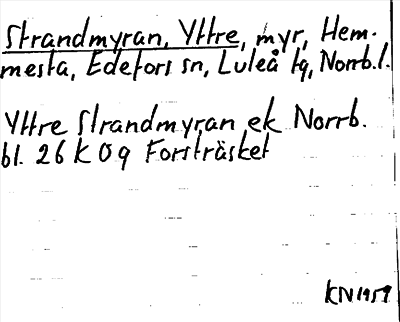 Strandmyran, Yttre, myr, Hem-
mesta, Edefors sn, Luleå tg, Norrb.l.
Yttre Strandmyran ek Norrb.
bl. 26 K 0 g Forsträsket
KN 1959